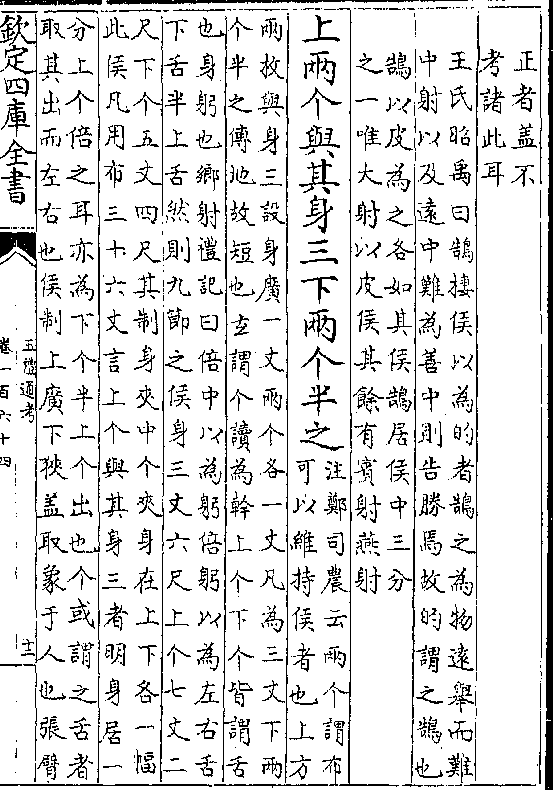 正者盖不
考諸此耳
王氏昭禹曰鵠棲侯以為的者鵠之為物遠舉而難
中射以及遠中難為善中則告勝焉故的謂之鵠也
鵠以皮為之各如其侯鵠居侯中三分
之一唯大射以皮侯其餘有賓射燕射
上兩个與其身三下兩个半之
注鄭司農云兩个謂布
可以維持侯者也上方
兩枚與身三設身廣一丈兩个各一丈凡為三丈下兩
个半之傅地故短也玄謂个讀為幹上个下个皆謂舌
也身躬也鄉射禮記曰倍中以為躬倍躬以為左右舌
下舌半上舌然則九節之侯身三丈六尺上个七丈二
尺下个五丈四尺其制身夾中个夾身在上下各一幅
此侯凡用布三十六丈言上个與其身三者明身居一
分上个倍之耳亦為下个半上个出也个或謂之舌者
取其出而左右也侯制上廣下狹盖取象于人也張臂
欽定四庫全書
五禮通考
卷一百六十四